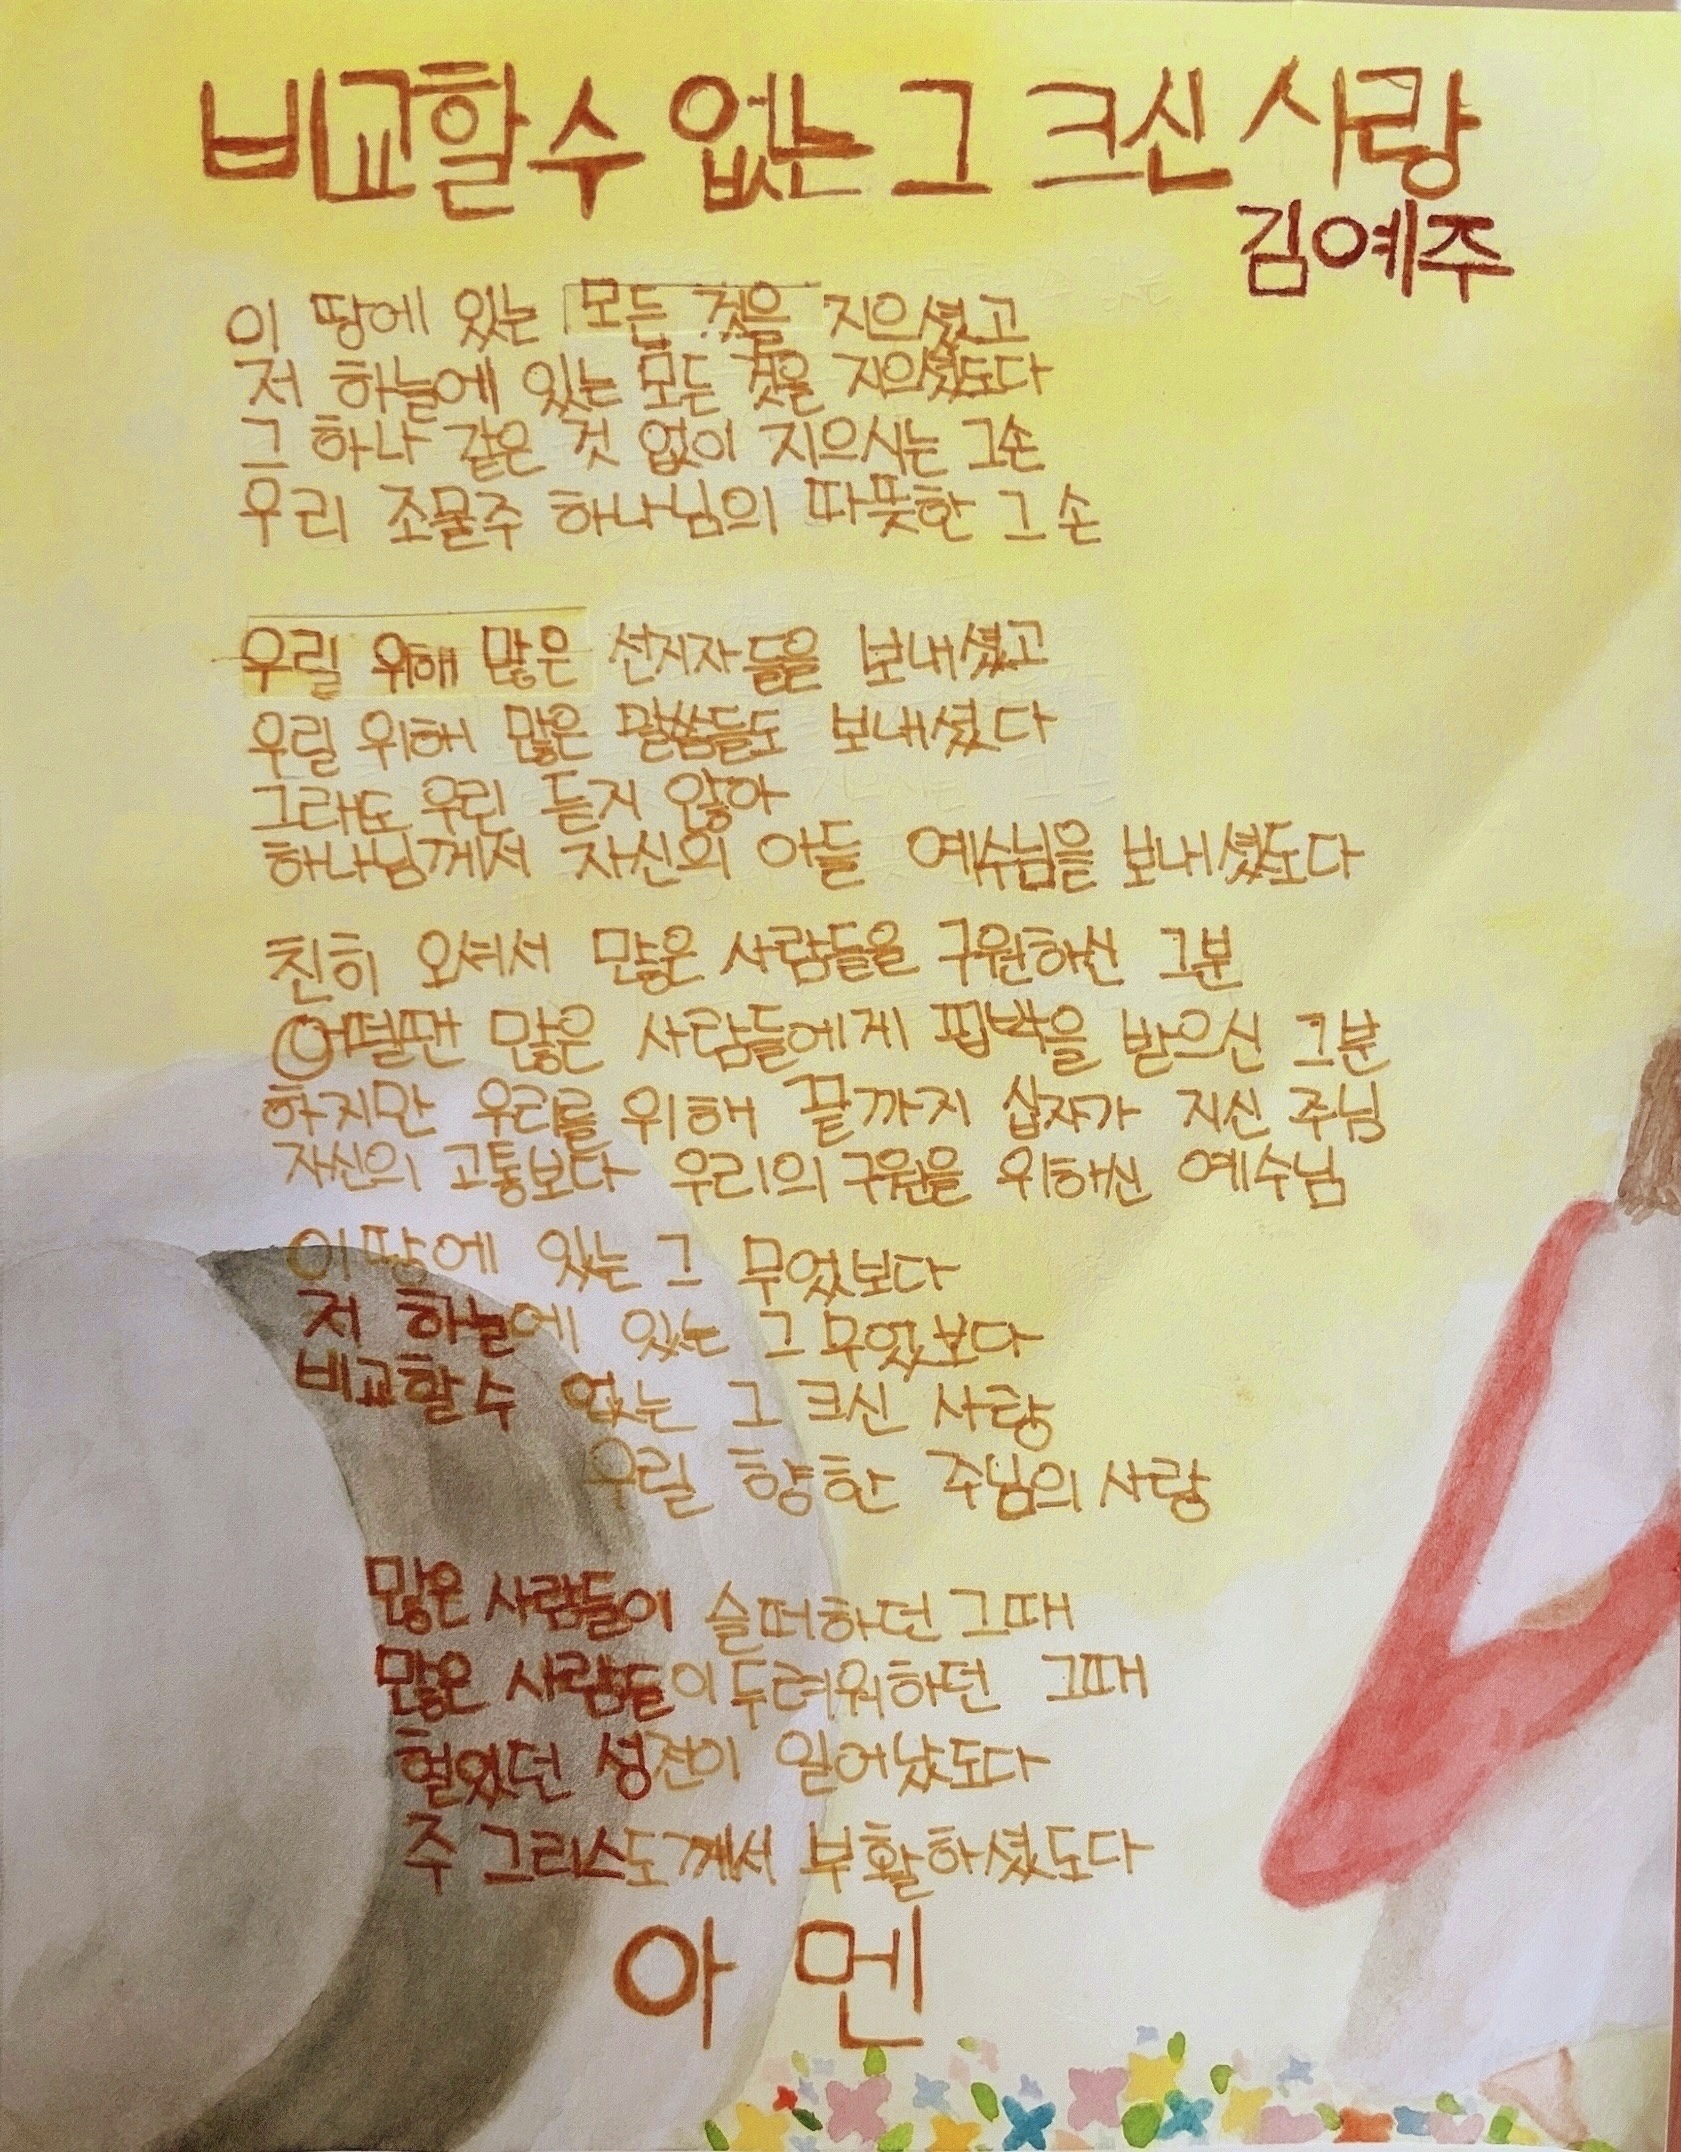 비교할 수 없는 그 크신 사랑
김예주
이 땅에 있는 모든 것을 지으셨고
저 하늘에 있는 모든 것을 지으셨도다
그 하나 같은 것 없이 지으시는 그손
우리 조물주 하나님의 따뜻한 그 손
우릴 위해 많은 선지자들을 보내셨고
우릴 위해 많은 말씀들도 보내셨다
그래도 우린 듣지 않아
하나님께서 자신의 아들 예수님을 보내셨도다
친히 오셔서 많은 사람들을 구원하신 그분
어떨땐 많은 사람들에게 핍박을 받으신 그분
하지만 우리를 위해 끝까지 십자가 지신 주님
자신의 고통보다 우리의 구원을 위하신 예수님
이 땅에 있는 그 무엇보다
저 하늘에 있는 그 무엇보다
비교할 수 없는 그 크신 사랑
우릴 향한 주님의 사랑
많은 사람들이 슬퍼하던 그때
많은 사람들이 두려워하던 그때
헐었던 성전이 일어났도다
주 그리스도께서 부활하셨도다
아 멘